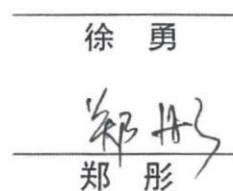 徐 勇
郑彤
郑 彤